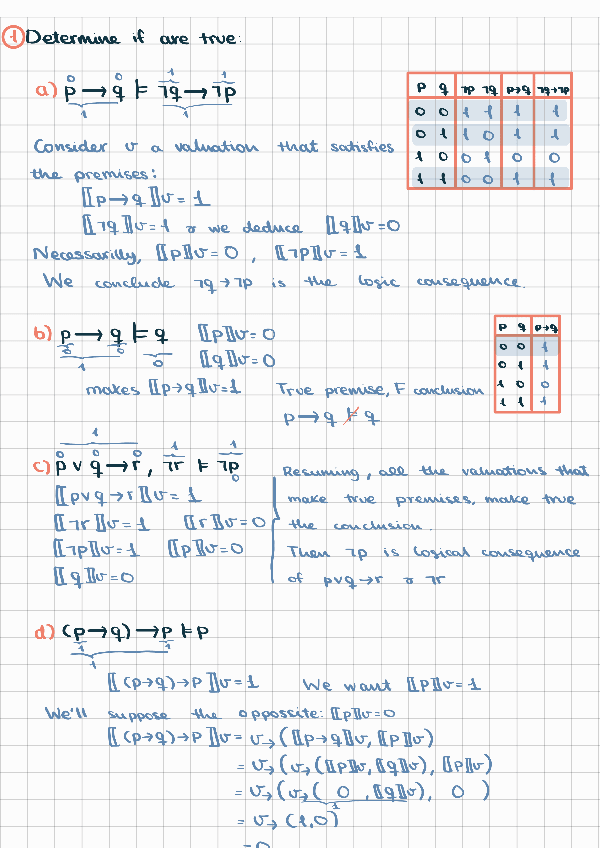 1 Determine if are true:
a) p → q ⊨ ¬q → ¬p
0 0 1 1
1 1
p q ¬p ¬q p→q ¬q→¬p
0 0 1 1 1 1
0 1 1 0 1 1
1 0 0 1 0 0
1 1 0 0 1 1
Consider v a valuation that satisfies
the premises:
⟦p → q⟧v = 1
⟦¬q⟧v = 1 & we deduce ⟦q⟧v = 0
Necessarilly, ⟦p⟧v = 0 , ⟦¬p⟧v = 1
We conclude ¬q → ¬p is the logic consequence.
b) p → q ⊨ q ⟦p⟧v = 0
0 0 0
1
⟦q⟧v = 0
makes ⟦p→q⟧v = 1 True premise, F conclusion
p → q ⊭ q
p q p→q
0 0 1
0 1 1
1 0 0
1 1 1
c) p ∨ q → r , ¬r ⊨ ¬p
1 1 1
0 0 0 0
⟦p∨q → r⟧v = 1
⟦¬r⟧v = 1 ⟦r⟧v = 0
⟦¬p⟧v = 1 ⟦p⟧v = 0
⟦q⟧v = 0
Resuming, all the valuations that
make true premises, make true
the conclusion.
Then ¬p is logical consequence
of p∨q → r & ¬r
d) (p → q) → p ⊨ p
1 1
1
⟦(p→q) → p⟧v = 1 We want ⟦p⟧v = 1
We'll suppose the oppossite: ⟦p⟧v = 0
⟦(p→q) → p⟧v = v→(⟦p→q⟧v, ⟦p⟧v)
= v→(v→(⟦p⟧v, ⟦q⟧v), ⟦p⟧v)
= v→(v→( 0 , ⟦q⟧v), 0 )
1
= v→ (1,0)
= 0